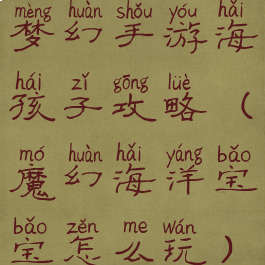 mèng huàn shǒu yóu hǎi
梦幻手游海
hái zǐ gōng lüè
孩子攻略（
mó huàn hǎi yáng bǎo
魔幻海洋宝
bǎo zěn me wán
宝怎么玩）